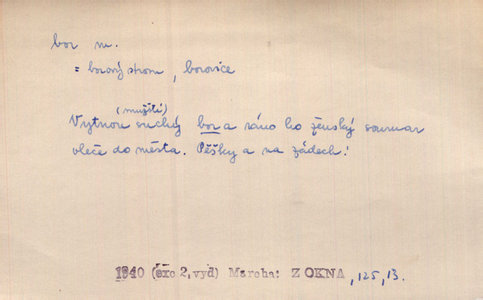 bor m.
= borový strom, borovice
(mužští)
Vytnou suchý bor a ráno ho ženský soumar
vleče do města. Pěšky a na zádech!
1940 (exc 2, vyd) Marcha: Z OKNA, 125, 13.